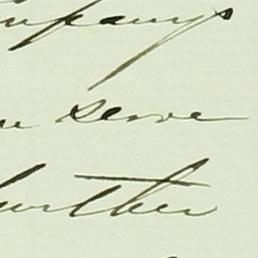 ompany's
serve
further